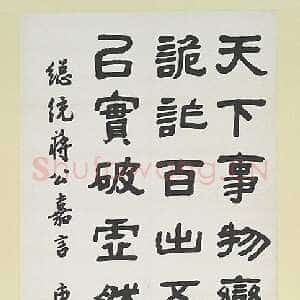 天下事物變
詭詐百出
㠯實破虛然
總統蔣公嘉言
Shufawang.CN